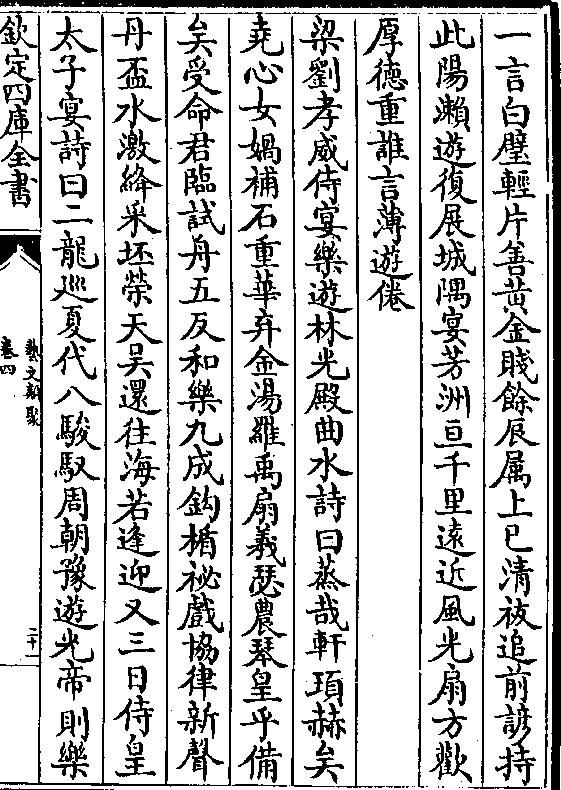 一言白璧輕片善黄金賤餘辰属上巳清祓追前諺持
此陽瀨遊復展城隅宴芳洲亘千里遠近風光扇方歡
厚德重誰言薄遊倦
梁劉孝威侍宴樂遊林光殿曲水詩曰蒸哉軒頊赫矣
堯心女媧補石重華弃金湯羅禹扇羲瑟農琴皇乎備
矣受命君臨試舟五反和樂九成鈎楯祕戲協律新聲
丹盃水激絳采坯榮天吴還往海若逢迎又三日侍皇
太子宴詩曰二龍巡夏代八駿馭周朝豫遊光帝則樂
欽定四庫全書
藝文類聚
卷四
二十一